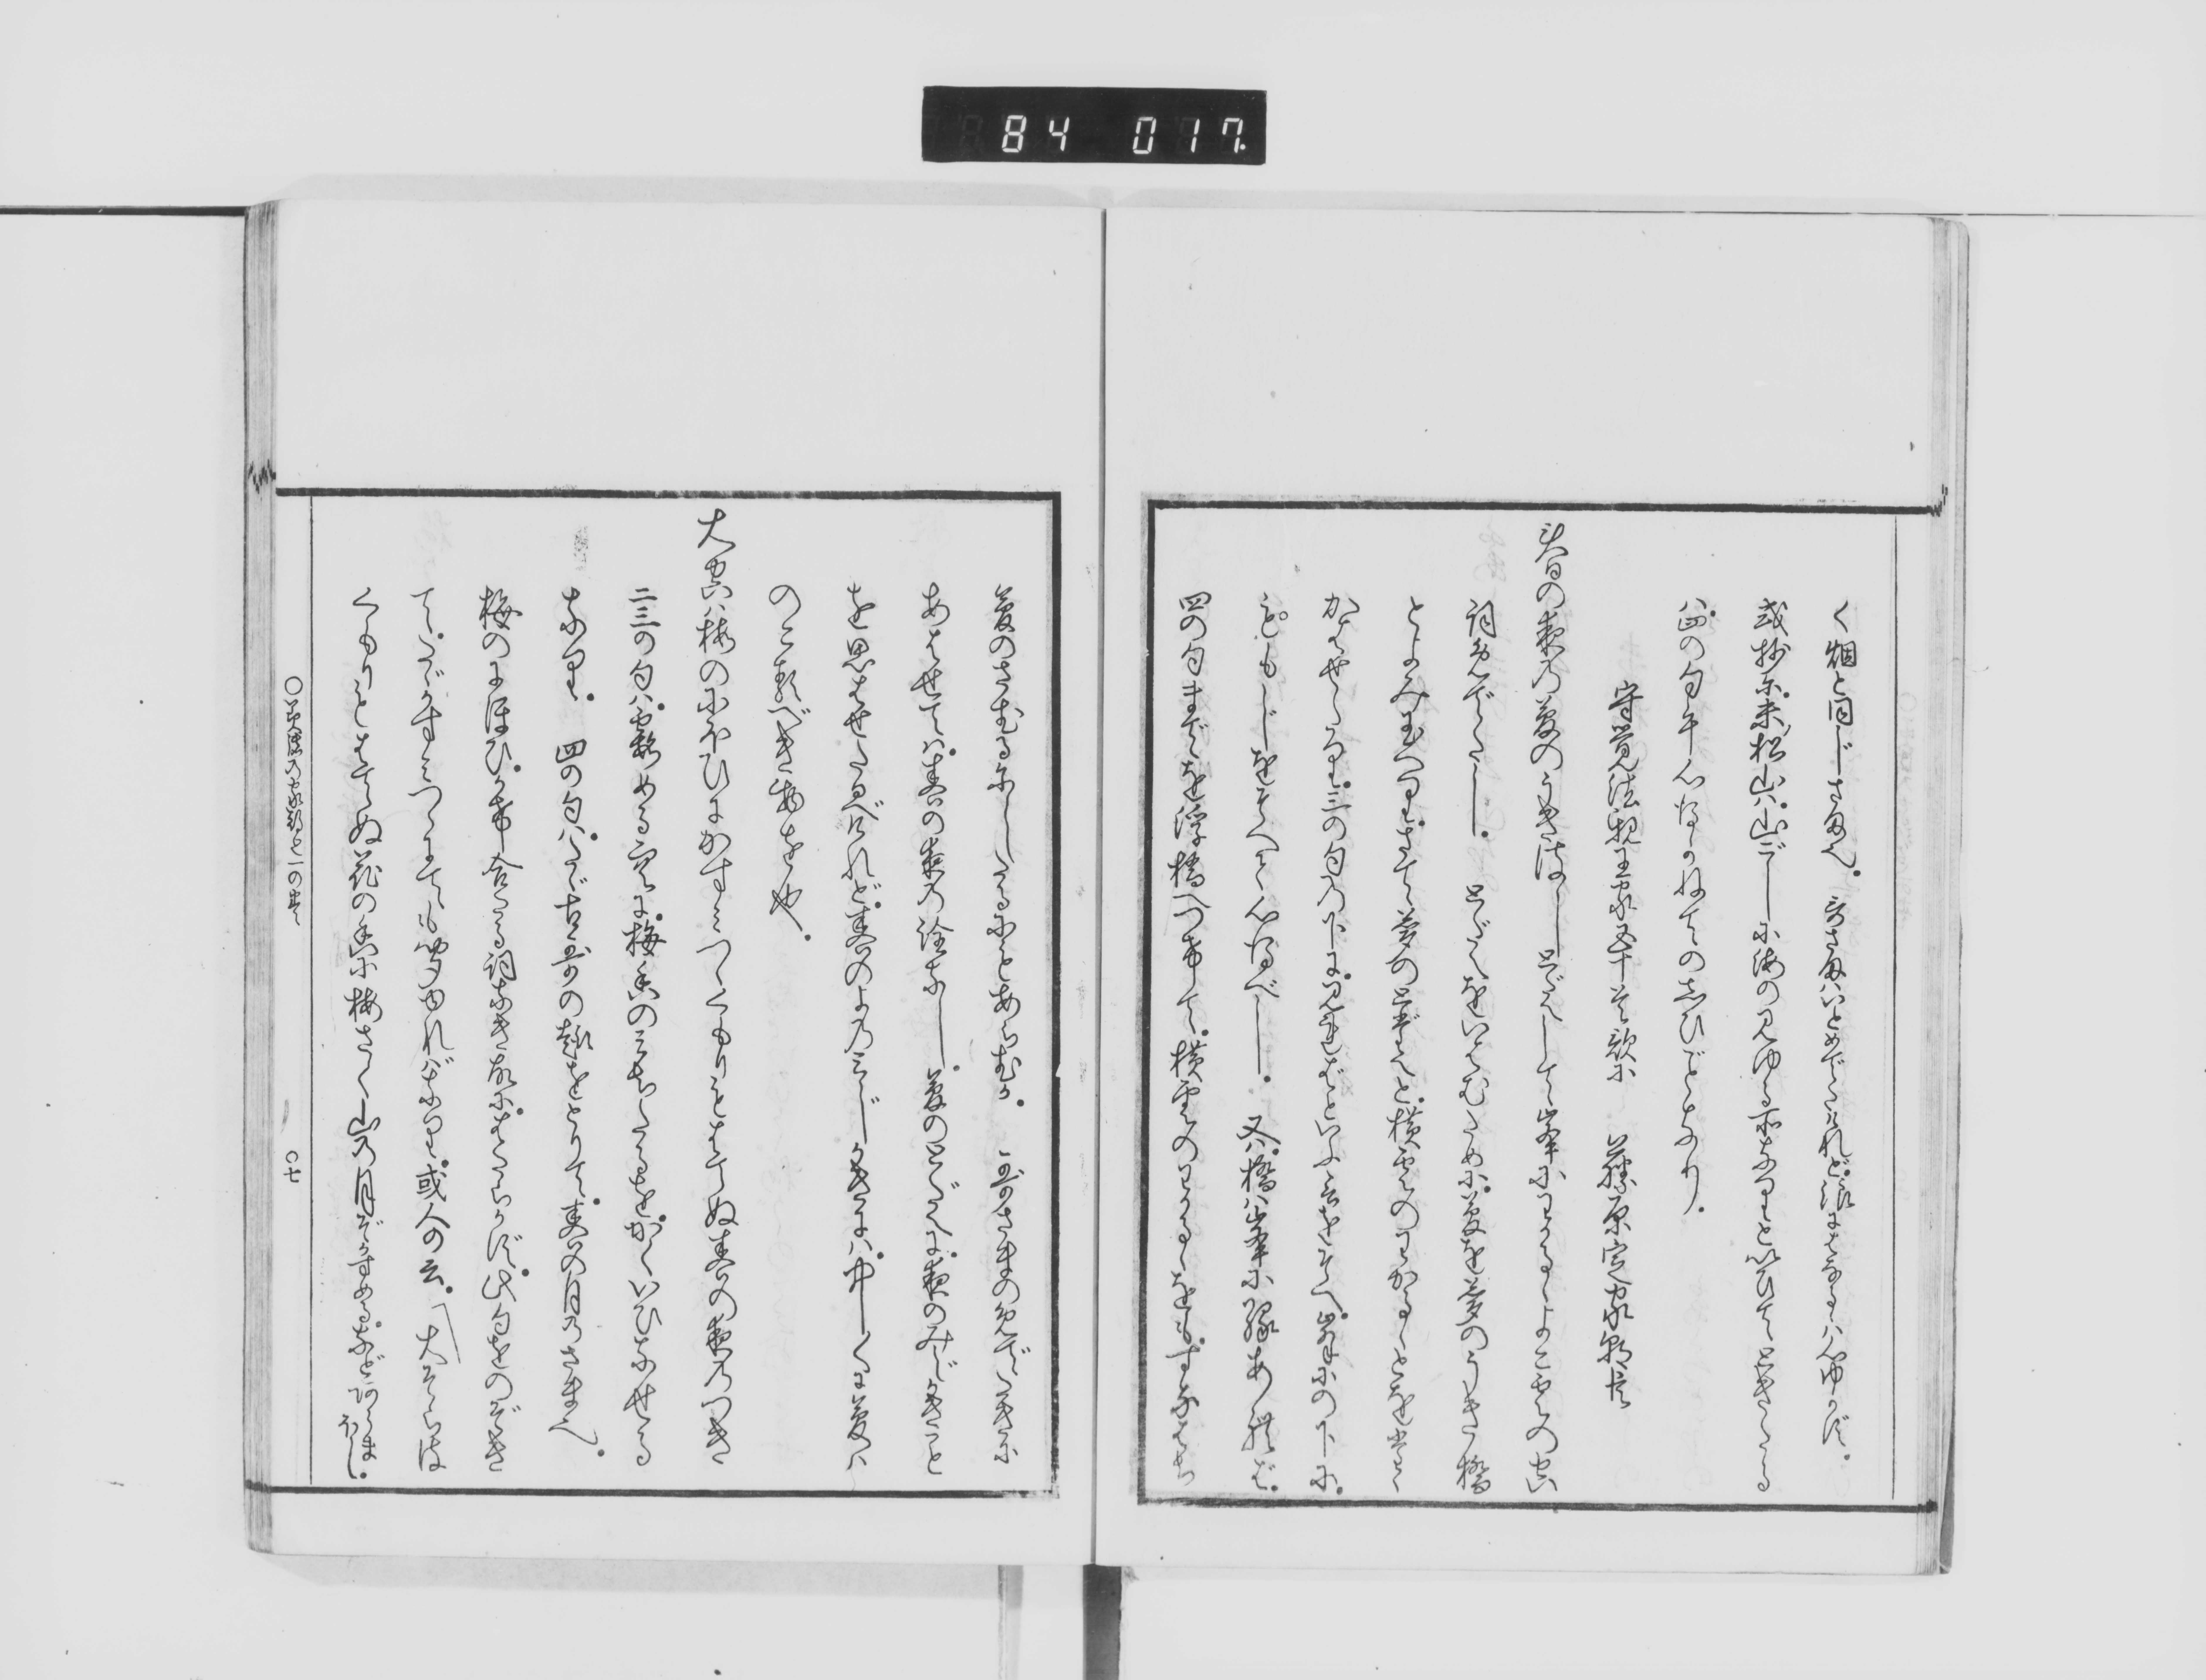 84 017.
く烟と同じさま也。哥ざまはいとめでたけれど。浪にはなるゝハ心ゆかず。
或抄に。末ノ松山ハ。山ごしに海の見ゆる所なりといひて。ときたる
ハ。四の句を心得かねてのしひごとなり。
守覺法親王家五十首歌に　藤原定家朝臣
春の夜の夢のうき橋とだえして峯にわかるゝよこ雲の空
詞めでたし。とだえをいはむために。夢を夢のうき橋
とよみ玉へり。さて夢のとだえと。横雲のわかるゝとを
かはせたるなり。三の句の下に。見ればといふ言をそへ。嶺にの下に。
もじをそへて心得べし。又ハ橋ハ峯に縁あれば。
四の句までを浮橋へつゞけて。横雲のわかるゝをも。すなはち
夢のさむるにしたるにもあらむか。一首のさまのめでたきに
あはせてハ。春の夜の詮なし。夢のとだえに。夜のみじかきこと
を思はせたるべけれど。春のよのみじかきにハ。中〱に夢ハ
のこるべき物をや。
大空ハ梅のにほひにかすみつゝくもりもはてぬ春の夜の月
二三の句ハ。霞める空に。梅香のみちたるを。かくいひなせる
なり。四の句ハ。たゞ古哥の趣をとりて。春の月のさま也。
梅のにほひ。かけ合たる詞なき故に。はたらかず。此句をのぞき
て。たゞかすみつゝにても聞ゆればなり。或人の云。大ぞらは
くもりもはてぬ花の香に梅さく山の月ぞかすめる。などあらまほし。
○美濃乃家都と一の上
○七